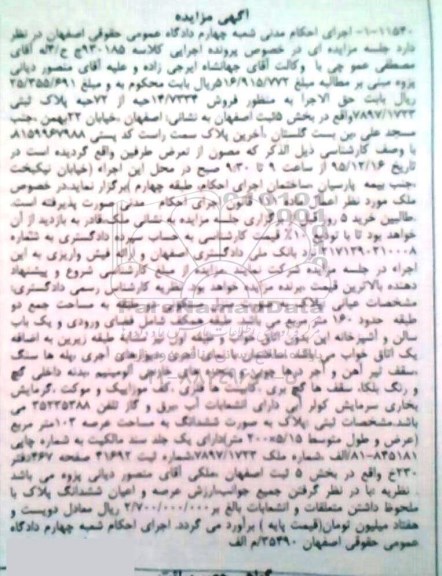 آگهی مزایده
۱۱۵۳۰-۱- اجرای احکام مدنی شعبه چهارم دادگاه عمومی حقوقی اصفهان در نظر
دارد جلسه مزایده ای در خصوص پرونده اجرایی کلاسه ۹۳۰۱۸۵ج ح/۴له آقای
مصطفی عمو چی با وکالت آقای جهانشاه ایرجی زاده و علیه آقای منصور دیانی
پزوه مبنی بر مطالبه مبلغ ۵۱۶/۹۱۵/۷۷۲ریال بابت محکوم به و مبلغ ۲۵/۳۵۵/۶۹۱
ریال بابت حق الاجرا به منظور فروش ۱۴/۷۳۳۴حبه از ۷۲حبه پلاک ثبتی
۷۸۹۷/۱۷۳۳واقع در بخش ۵ثبت اصفهان به نشانی: اصفهان ،خیابان ۲۲بهمن ،جنب
مسجد علی ،بن بست گلستان ،آخرین پلاک سمت راست کد پستی ۸۱۵۹۹۶۷۹۸۸
با وصف کارشناسی ذیل الذکر که مصون از تعرض طرفین واقع گردیده است در
تاریخ ۹۵/۱۲/۱۶ از ساعت ۹ تا ۹:۳۰ صبح در محل این اجراء (خیابان نیکبخت
،جنب بیمه پارسیان ،ساختمان اجرای احکام، طبقه چهارم )برگزار نماید.در خصوص
ملک مورد نظر اعمال ماده قانون اجرای احکام مدنی صورت پذیرفته است.
طالبین خرید ۵ روز قبل برگزاری جلسه مزایده به نشانی ملک قادر به بازدید از آن
خواهد بود تا با تودیع ۱۰٪ قیمت کارشناسی به حساب سپرده دادگستری به شماره
۲۱۷۱۲۹۰۲۱۰۰۰۸ نزد بانک ملی دادگستری اصفهان و ارائه فیش واریزی به این
اجراء در جلسه مزایده شرکت نمایند مزایده از مبلغ کارشناسی شروع و پیشنهاد
دهنده بالاترین قیمت ،برنده مزایده خواهد بود نظریه کارشناس رسمی دادگستری:
مشخصات عیانی پلاک به صورت طبقه به مساحت جمع دو
طبقه حدود ۱۶۰ متر مربع می شامل فضای ورودی و یک باب
سالن و آشپزخانه اپن یک اتاق خواب و طبقه اول نیز مشابه طبقه زیرین به اضافه
یک اتاق خواب می باشد دیوارهای آجری ،پله ها سنگ
،سقف تیر آهن و آجر درها چوبی پنجره های خارجی آلومینیم بدنه داخلی گچ
و رنگ یلکا، سقف ها گچ بری ،کابینت ها فلزی ،کف موزاییک و موکت ،گرمایش
بخاری سرمایش کولر آبی دارای انشعابات آب ،برق و گاز تلفن ۳۵۲۳۵۳۸۸ می
باشد.مشخصات ثبتی :پلاک به صورت ششدانگ به مساحت عرصه ۱۰۳متر مربع
(عرض و طول متوسط ۵/۱۵×۲۰متر)دارای یک جلد سند مالکیت به شماره چاپی
۸۱-۸۳۵۱۸۱/الف ،شماره ملک ۷۸۹۷/۱۷۳۳،شماره ثبت ۳۱۶۹۲ صفحه ۴۶۷دفتر
۲۳۰ع واقع در بخش ۵ ثبت اصفهان ،ملکی آقای منصور دیانی پزوه می باشد
. نظریه :با در نظر گرفتن جمیع جوانب،ارزش عرصه و اعیان ششدانگ پلاک با
ملحوظ داشتن متعلقات و انشعابات بالغ بر۲/۷۰۰/۰۰۰/۰۰۰ ریال معادل دویست و
هفتاد میلیون تومان(قیمت پایه ) برآورد می گردد. اجرای احکام شعبه چهارم دادگاه
عمومی حقوقی اصفهان ۳۵۴۹۰/م الف